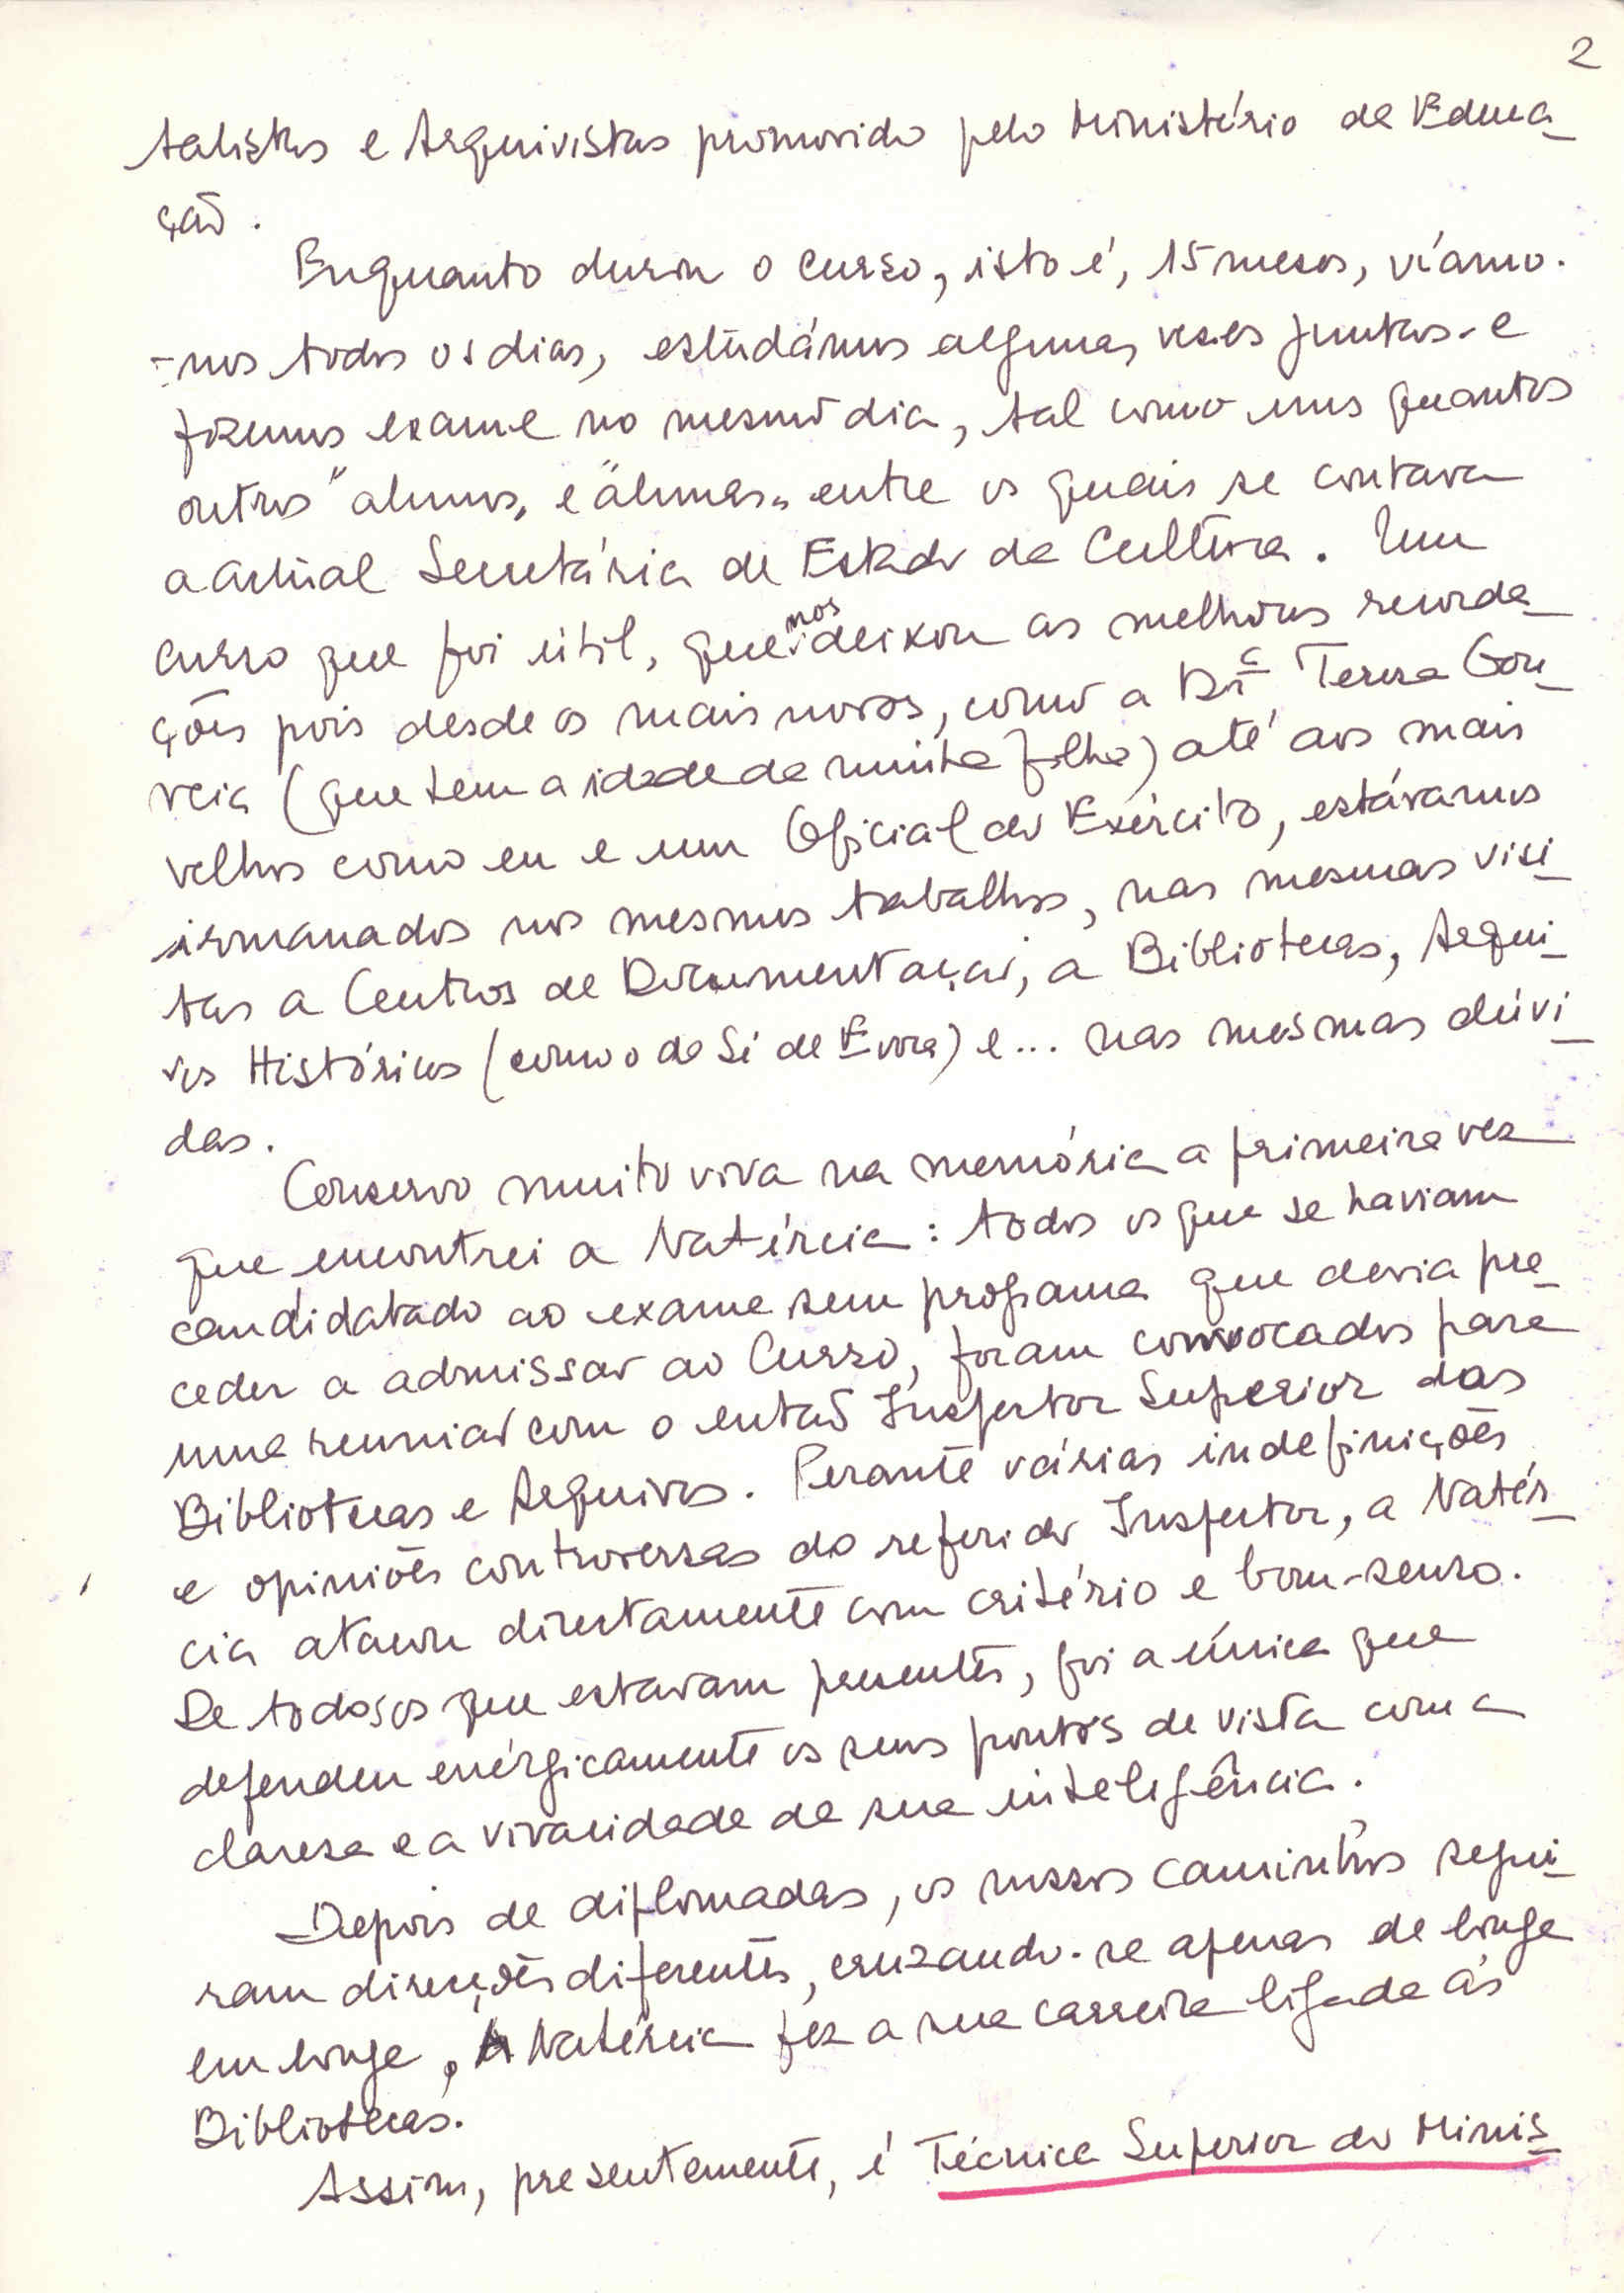 2
talistas e Arquivistas promovido pelo Ministério da Educa-
ção.
Enquanto durou o curso, isto é, 15 meses, víamo-
-nos todos os dias, estudámos algumas vezes juntas e
fizemos exame no mesmo dia, tal como uns quantos
outros "alunos" e "alunas" entre os quais se contava
a actual Secretária de Estado da Cultura. Um
curso que foi útil, que nos deixou as melhores recorda-
ções pois desde os mais novos, como a Drª Teresa Gou-
veia (que tem a idade da minha filha) até aos mais
velhos como eu e um Oficial do Exército, estávamos
irmanados nos mesmos trabalhos, nas mesmas visi-
tas a Centros de Documentação, a Bibliotecas, Arqui-
vos Históricos (como o da Sé de Évora) e... nas mesmas dúvi-
das.
Conservo muito viva na memória a primeira vez
que encontrei a Natércia: todos os que se haviam
candidatado ao exame sem programa que devia pre-
ceder a admissão ao Curso, foram convocados para
uma reunião com o então Inspector Superior das
Bibliotecas e Arquivos. Perante várias indefinições
e opiniões controversas do referido Inspector, a Natér-
cia atacou directamente com critério e bom-senso.
De todos os que estavam presentes, foi a única que
defendeu enérgicamente os seus pontos de vista com a
clareza e a vivacidade da sua inteligência.
Depois de diplomadas, os nossos caminhos segui-
ram direcções diferentes, cruzando-se apenas de longe
em longe. A Natércia fez a sua carreira ligada às
Bibliotecas.
Assim, presentemente, é Técnica Superior do Minis-